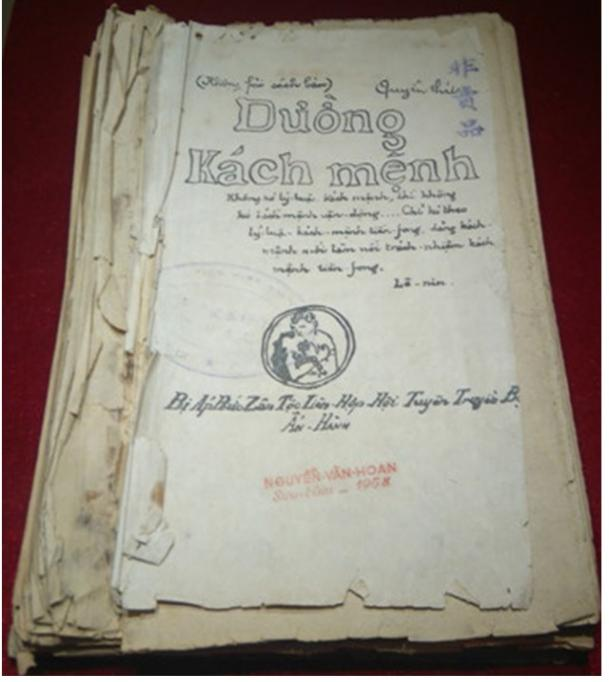 (Không fải sách bán) Quyển thứ
非賣品
Đường
Kách mệnh
Không có lý luận kách mệnh, thì không
có kách mệnh vận-động.... Chỉ có theo
lý luận kách-mệnh tiền-fong, đảng kách-
mệnh mới làm nổi trách-nhiệm kách
mệnh tiền-fong.
Lê-nin.
Bị Áp Bức Zân Tộc Liên-Hợp Hội Tuyên Truyền B.
Ấn-Hành
NGUYỄN-VĂN-HOAN
Sưu-tầm - 1968